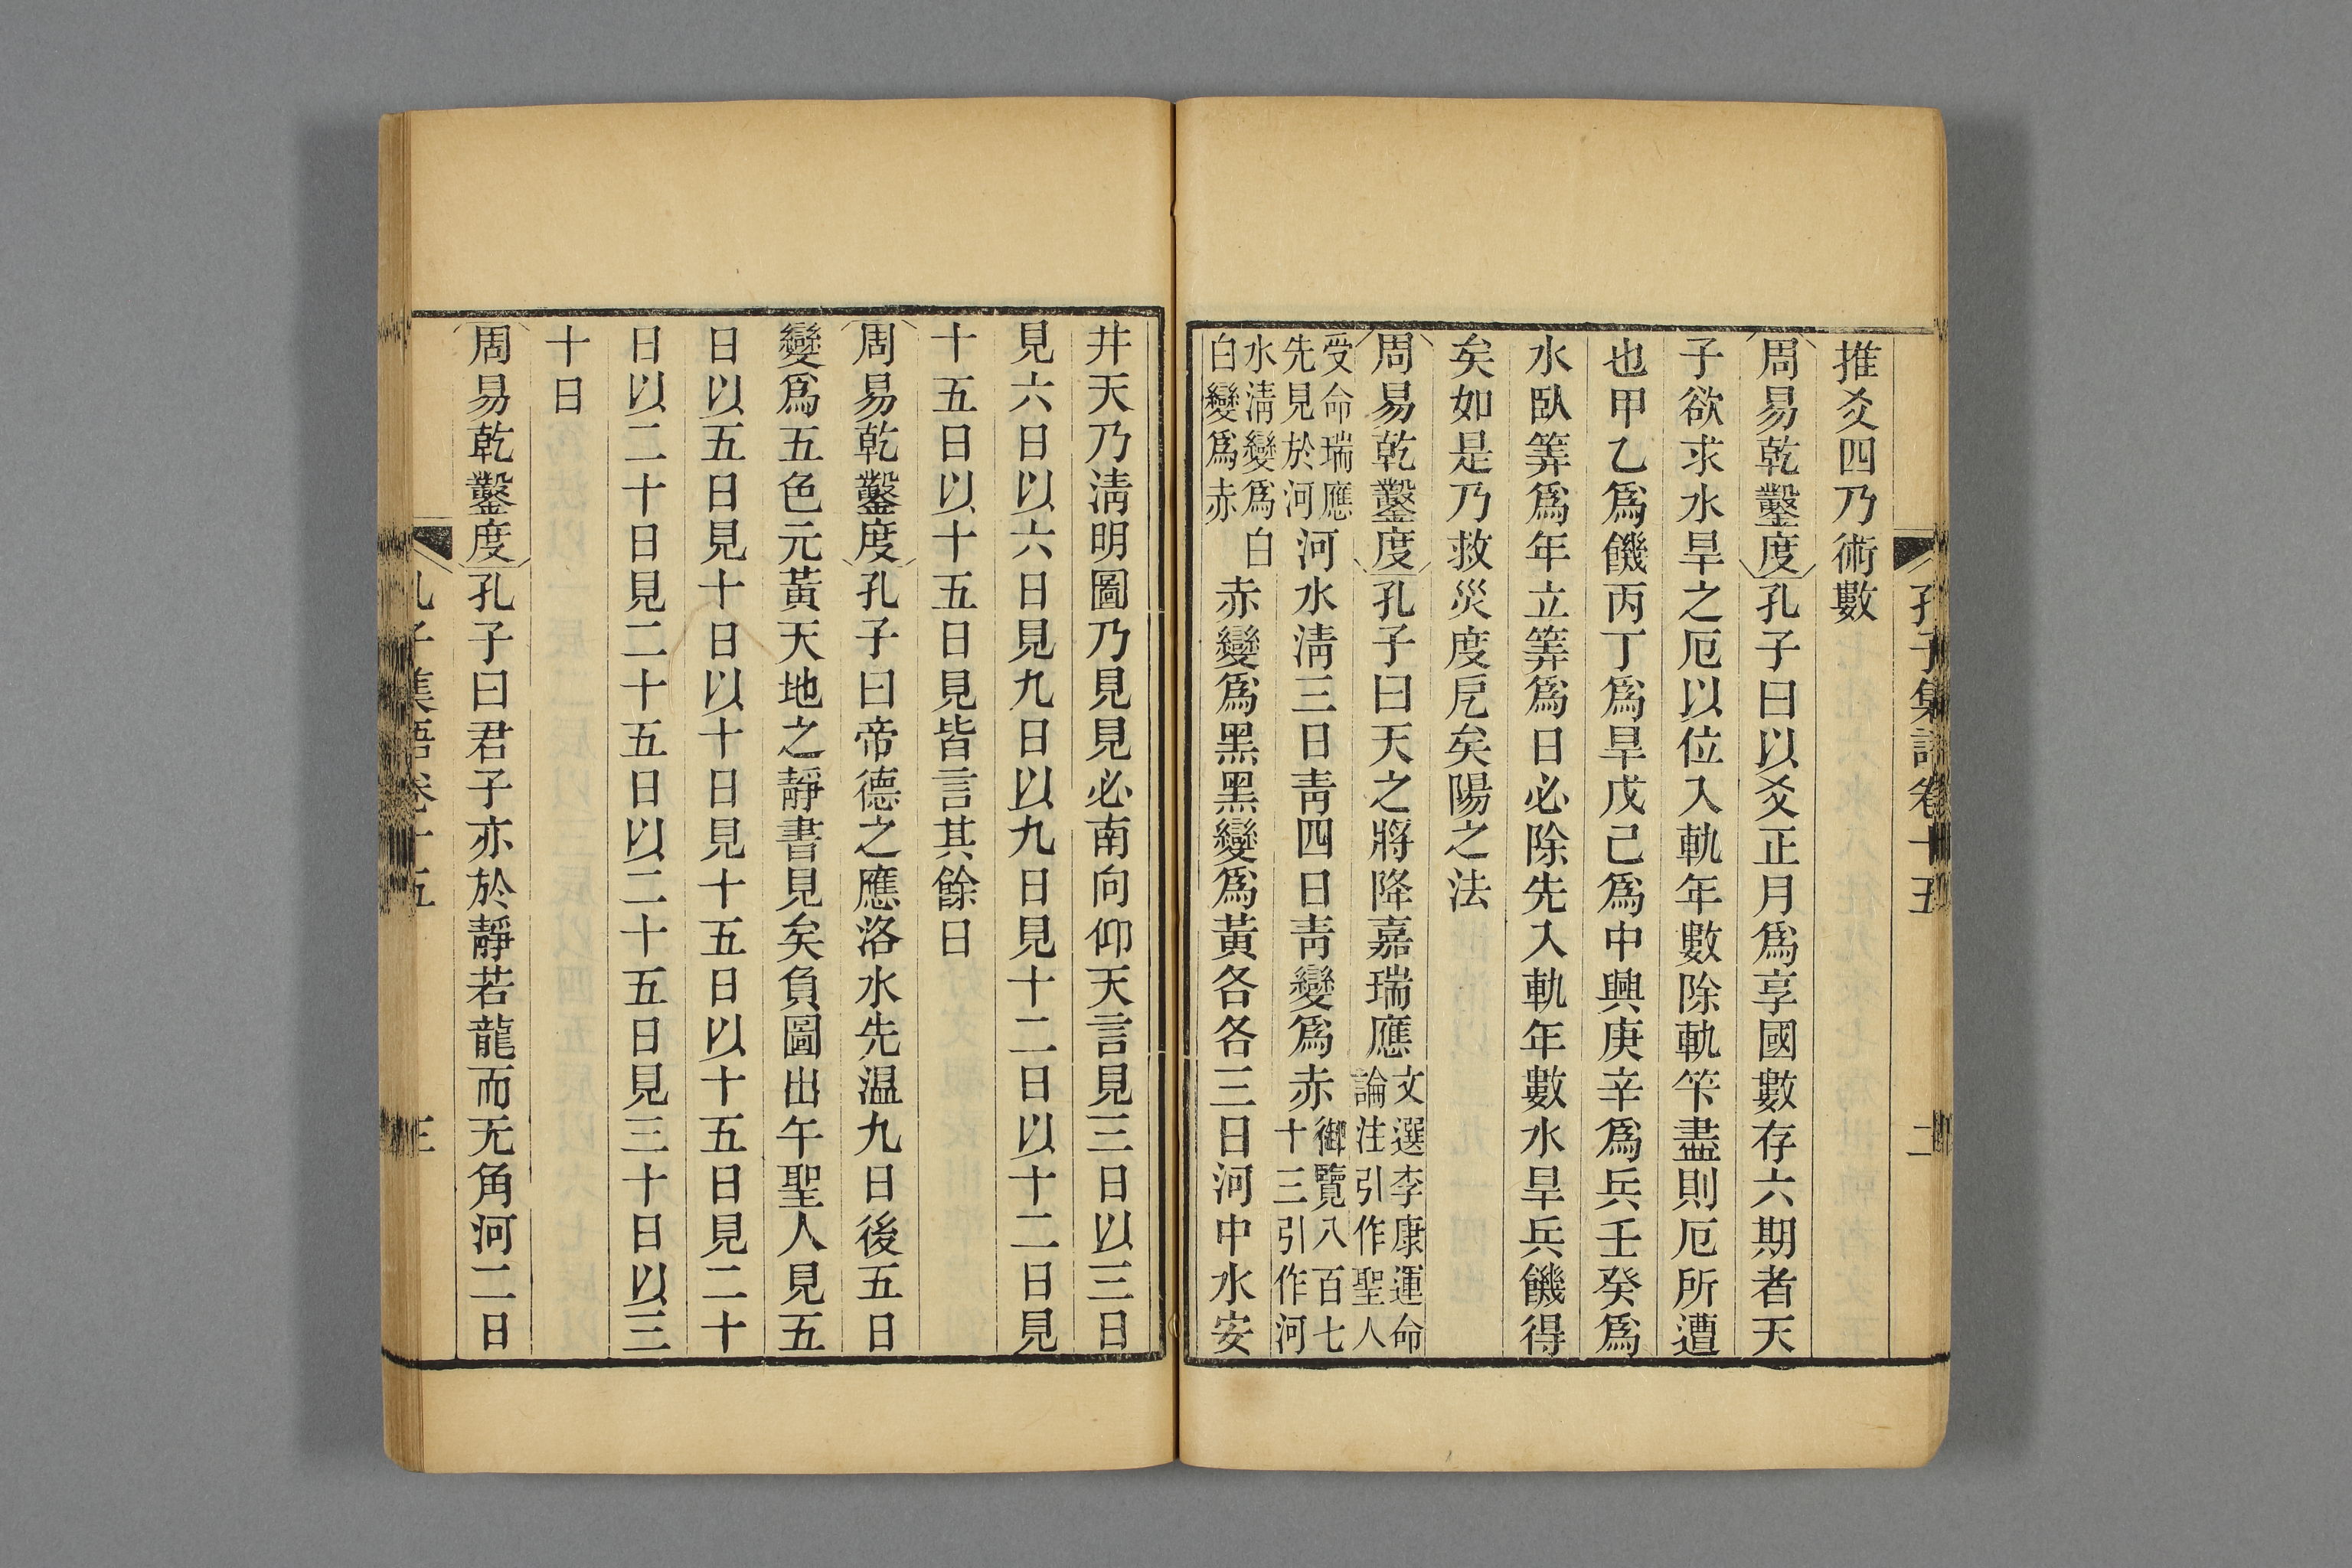 孔子集語卷十五 二
推爻四乃術數
周易乾鑿度孔子曰以爻正月爲享國數存六期者天
子欲求水旱之厄以位入軌年數除軌筭盡則厄所遭
也甲乙爲饑丙丁爲旱戊己爲中興庚辛爲兵壬癸爲
水臥筭爲年立筭爲日必除先入軌年數水旱兵饑得
矣如是乃救災度戹矣陽之法
周易乾鑿度孔子曰天之將降嘉瑞應文選李康運命論注引作聖人
受命瑞應先見於河河水淸三日靑四日靑變爲赤御覽八百七十三引作河
水淸變爲白白變爲赤赤變爲黑黑變爲黃各各三日河中水安
井天乃淸明圖乃見見必南向仰天言見三日以三日
見六日以六日見九日以九日見十二日以十二日見
十五日以十五日見皆言其餘日
周易乾鑿度孔子曰帝德之應洛水先温九日後五日
變爲五色元黃天地之靜書見矣負圖出午聖人見五
日以五日見十日以十日見十五日以十五日見二十
日以二十日見二十五日以二十五日見三十日以三
十日
周易乾鑿度孔子曰君子亦於靜若龍而无角河二日
孔子集語卷十五 三